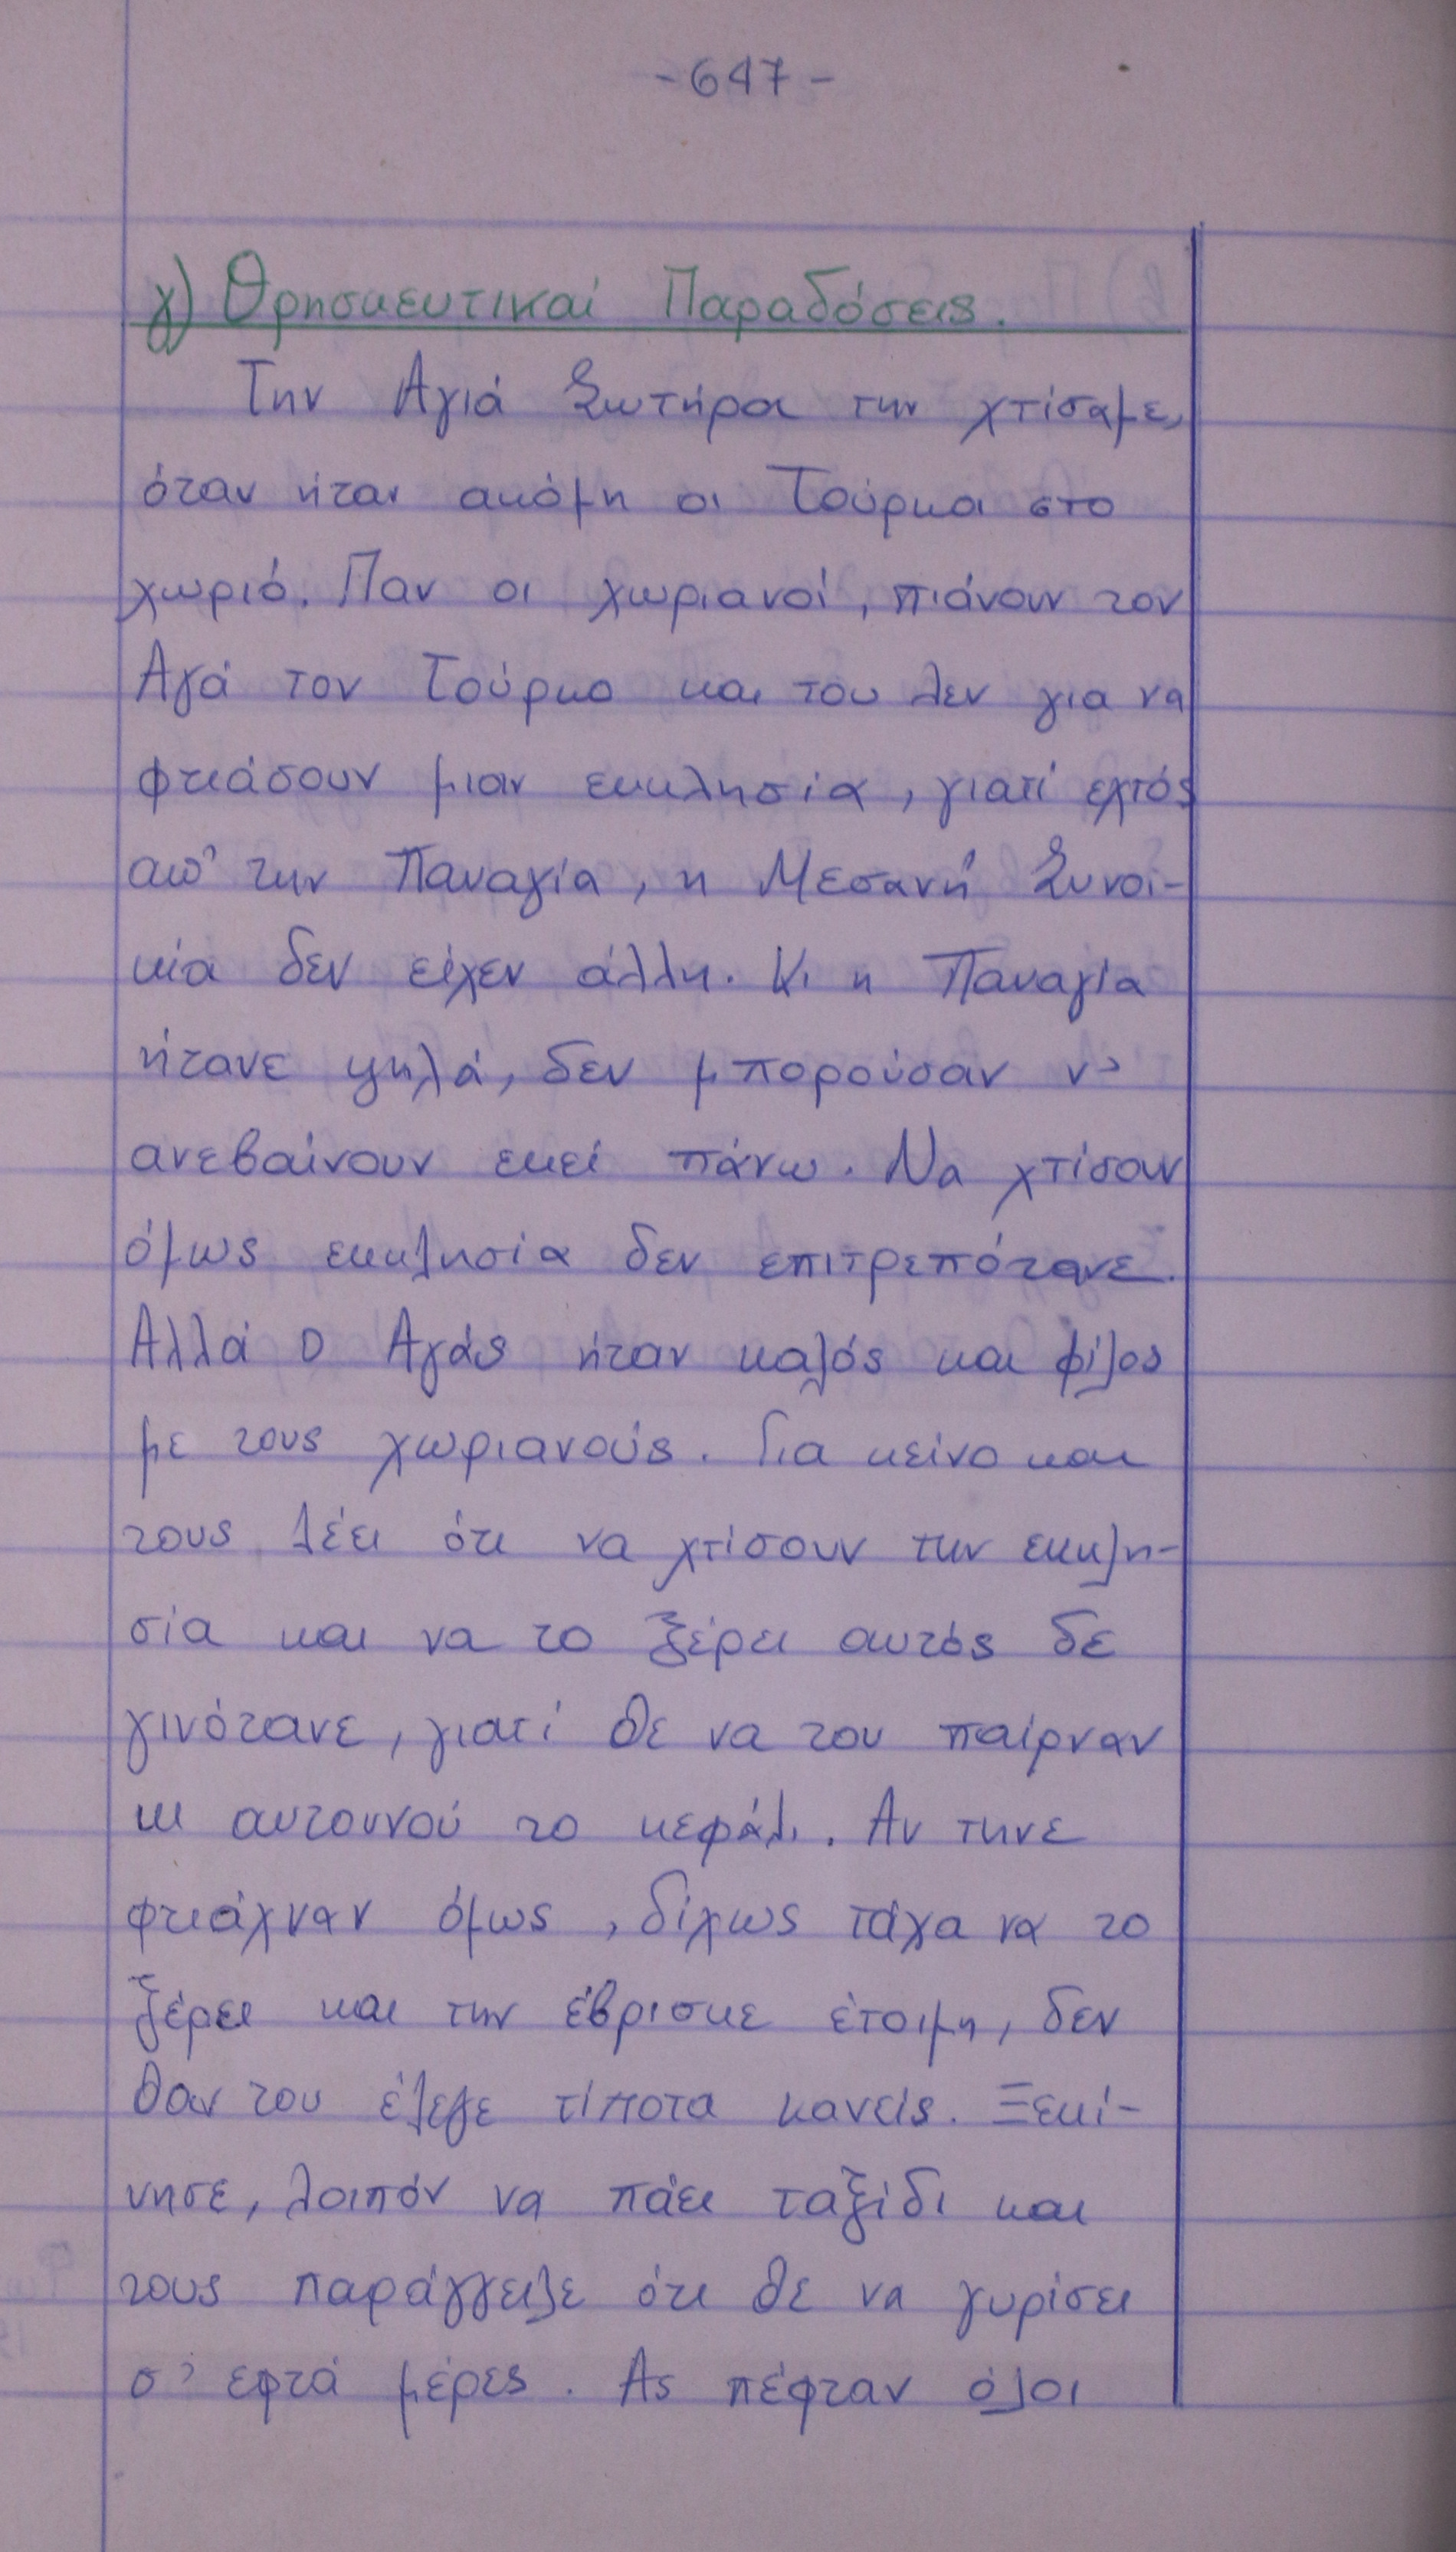 -647-
γ) Θρησκευτικαί Παραδόσεις.
Την Αγιά Σωτήρα την χτίσαμε,
όταν ήταν ακόμη οι Τούρκοι στο
χωριό. Παν οι χωριανοί, πιάνουν τον
Αγά τον Τούρκο και του λεν για να
φτιάσουν μιαν εκκλησία, γιατί εχτός
απ' την Παναγία, η Μεσανή Συνοι-
κία δεν είχεν άλλη. Κι η Παναγία
ήτανε ψηλά, δεν μπορούσαν ν'
ανεβαίνουν εκεί πάνω. Να χτίσουν
όμως εκκλησία δεν επιτρεπότανε.
Αλλά ο Αγάς ήταν καλός και φίλος
με τους χωριανούς. Για κείνο και
τους λέει ότι να χτίσουν την εκκλη-
σία και να το ξέρει αυτός δε
γινότανε, γιατί θε να του παίρναν
κι αυτουνού το κεφάλι. Αν τηνε
φτιάχναν όμως, δίχως τάχα να το
ξέρει και την έβρισκε έτοιμη, δεν
θαν του έλεγε τίποτα κανείς. Ξεκί-
νησε, λοιπόν να πάει ταξίδι και
τους παράγγειλε ότι θε να γυρίσει
σ' εφτά μέρες. Ας πέφταν όλοι